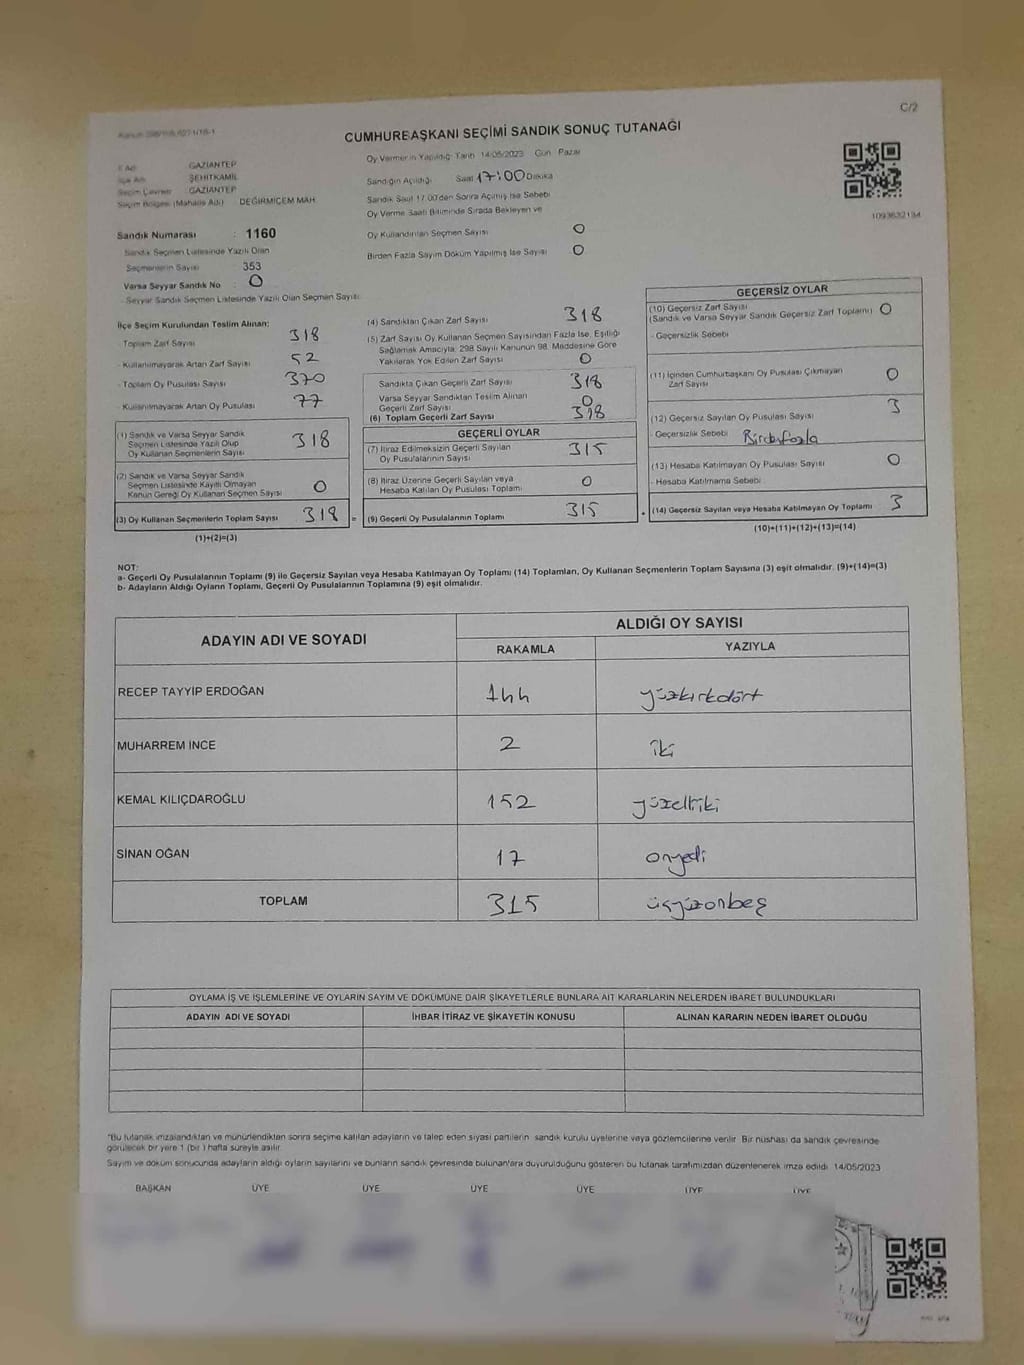 C/2
CUMHURBAŞKANI SEÇİMİ SANDIK SONUÇ TUTANAĞI
Oy Vermenin Yapıldığı Tarih 14/05/2023 Gün Pazar
İl Adı GAZİANTEP
İlçe Adı ŞEHİTKAMİL
Seçim Çevresi GAZİANTEP
Seçim Bölgesi (Mahalle Adı) DEĞİRMİÇEM MAH.
Sandığın Açıldığı Saat 17:00 Dakika
Sandık Saat 17.00'den Sonra Açılmış İse Sebebi
Oy Verme Saati Bitiminde Sırada Bekleyen ve
Oy Kullandırılan Seçmen Sayısı 0
Birden Fazla Sayım Döküm Yapılmış İse Sayısı 0
1093632134
Sandık Numarası : 1160
Sandık Seçmen Listesinde Yazılı Olan
Seçmenlerin Sayısı 353
Varsa Seyyar Sandık No : 0
- Seyyar Sandık Seçmen Listesinde Yazılı Olan Seçmen Sayısı:
İlçe Seçim Kurulundan Teslim Alınan:
- Toplam Zarf Sayısı 318
- Kullanılmayarak Artan Zarf Sayısı 52
- Toplam Oy Pusulası Sayısı 370
- Kullanılmayarak Artan Oy Pusulası 77
(1) Sandık ve Varsa Seyyar Sandık
Seçmen Listesinde Yazılı Olup
Oy Kullanan Seçmenlerin Sayısı 318
(2) Sandık ve Varsa Seyyar Sandık
Seçmen Listesinde Kayıtlı Olmayan
Kanun Gereği Oy Kullanan Seçmen Sayısı 0
(3) Oy Kullanan Seçmenlerin Toplam Sayısı 318 =
(1)+(2)=(3)
(4) Sandıktan Çıkan Zarf Sayısı 318
(5) Zarf Sayısı Oy Kullanan Seçmen Sayısından Fazla İse, Eşitliği
Sağlamak Amacıyla; 298 Sayılı Kanunun 98. Maddesine Göre
Yakılarak Yok Edilen Zarf Sayısı 0
Sandıkta Çıkan Geçerli Zarf Sayısı 318
Varsa Seyyar Sandıktan Teslim Alınan
Geçerli Zarf Sayısı 0
(6) Toplam Geçerli Zarf Sayısı 318
GEÇERLİ OYLAR
(7) İtiraz Edilmeksizin Geçerli Sayılan
Oy Pusulalarının Sayısı 315
(8) İtiraz Üzerine Geçerli Sayılan veya
Hesaba Katılan Oy Pusulası Toplamı 0
(9) Geçerli Oy Pusulalarının Toplamı 315 +
GEÇERSİZ OYLAR
(10) Geçersiz Zarf Sayısı
(Sandık ve Varsa Seyyar Sandık Geçersiz Zarf Toplamı) 0
- Geçersizlik Sebebi :
(11) İçinden Cumhurbaşkanı Oy Pusulası Çıkmayan
Zarf Sayısı 0
(12) Geçersiz Sayılan Oy Pusulası Sayısı 3
- Geçersizlik Sebebi : Birden fazla
(13) Hesaba Katılmayan Oy Pusulası Sayısı 0
- Hesaba Katılmama Sebebi :
(14) Geçersiz Sayılan veya Hesaba Katılmayan Oy Toplamı 3
(10)+(11)+(12)+(13)=(14)
NOT:
a- Geçerli Oy Pusulalarının Toplamı (9) ile Geçersiz Sayılan veya Hesaba Katılmayan Oy Toplamı (14) Toplamları, Oy Kullanan Seçmenlerin Toplam Sayısına (3) eşit olmalıdır. (9)+(14)=(3)
b- Adayların Aldığı Oyların Toplamı, Geçerli Oy Pusulalarının Toplamına (9) eşit olmalıdır.
ADAYIN ADI VE SOYADI ALDIĞI OY SAYISI
RAKAMLA YAZIYLA
RECEP TAYYİP ERDOĞAN 144 yüzkırkdört
MUHARREM İNCE 2 iki
KEMAL KILIÇDAROĞLU 152 yüzelliiki
SİNAN OĞAN 17 onyedi
TOPLAM 315 üçyüzonbeş
OYLAMA İŞ VE İŞLEMLERİNE VE OYLARIN SAYIM VE DÖKÜMÜNE DAİR ŞİKAYETLERLE BUNLARA AİT KARARLARIN NELERDEN İBARET BULUNDUKLARI
ADAYIN ADI VE SOYADI İHBAR İTİRAZ VE ŞİKAYETİN KONUSU ALINAN KARARIN NEDEN İBARET OLDUĞU
"Bu tutanak imzalandıktan ve mühürlendikten sonra seçime katılan adayların ve talep eden siyasi partilerin sandık kurulu üyelerine veya gözlemcilerine verilir. Bir nüshası da sandık çevresinde
görülecek bir yere 1 (bir) hafta süreyle asılır.
Sayım ve döküm sonucunda adayların aldığı oyların sayılarını ve bunların sandık çevresinde bulunanlara duyurulduğunu gösteren bu tutanak tarafımızdan düzenlenerek imza edildi. 14/05/2023
BAŞKAN ÜYE ÜYE ÜYE ÜYE ÜYE ÜYE